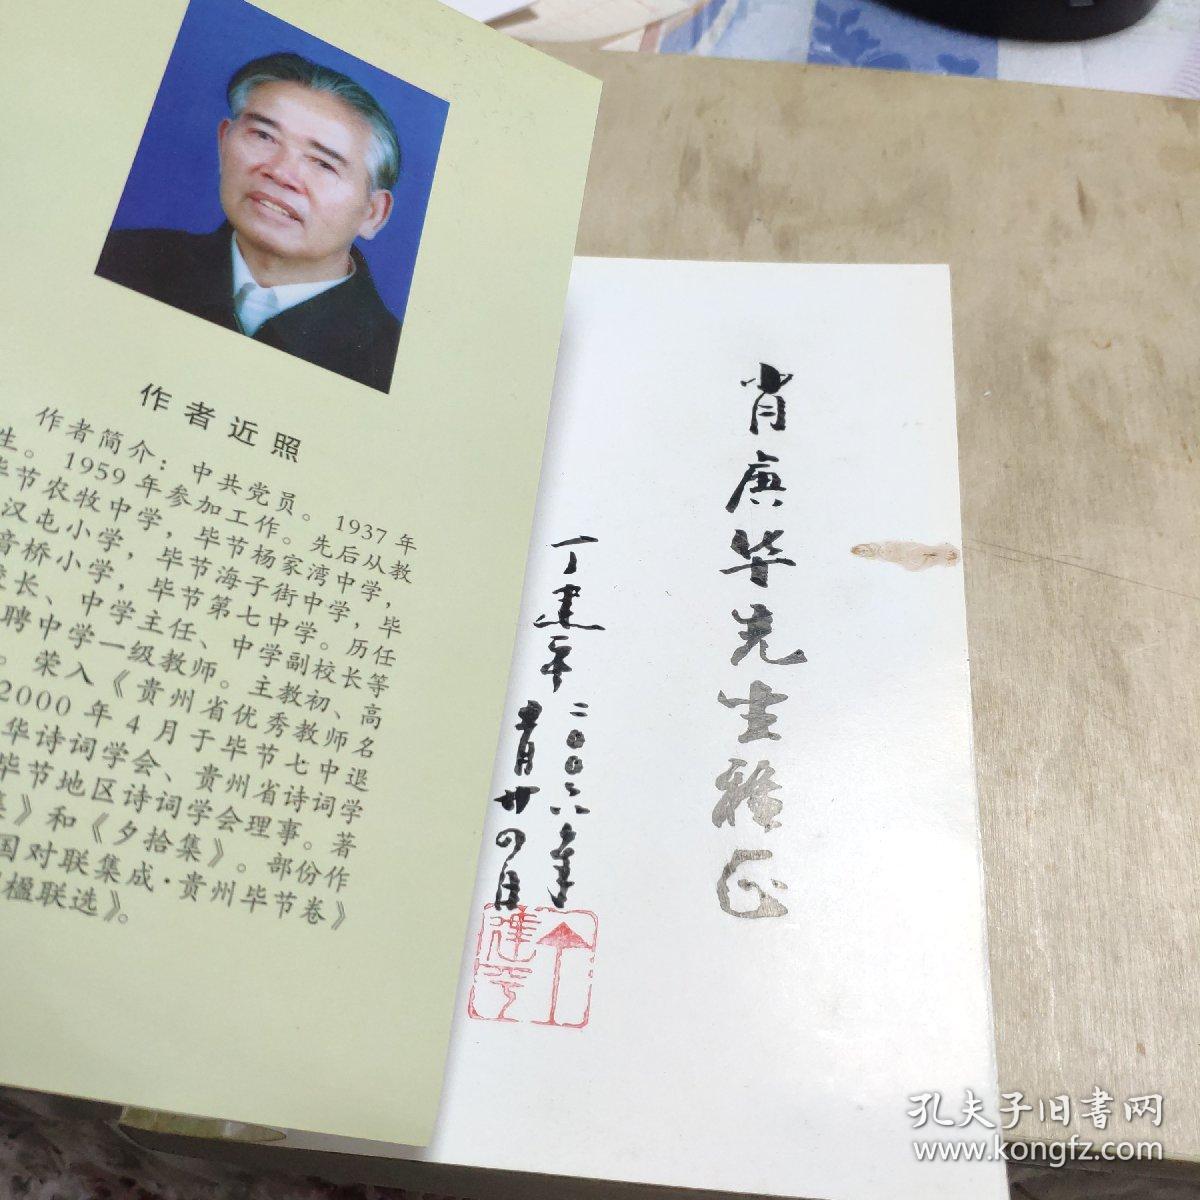 作者近照
作者简介：中共党员。1937年
生。1959年参加工作。先后从教
毕节农牧中学，毕节杨家湾中学，
汉屯小学，毕节海子街中学，毕
音桥小学，毕节第七中学。历任
校长、中学主任、中学副校长等
聘中学一级教师。主教初、高
。荣入《贵州省优秀教师名
2000年4月于毕节七中退
华诗词学会、贵州省诗词学
毕节地区诗词学会理事。著
集》和《夕拾集》。部份作
国对联集成·贵州毕节卷》
楹联选》。
肖庚华先生雅正
丁建平
二00六年
月廿四日
丁建平
孔夫子旧书网
www.kongfz.com